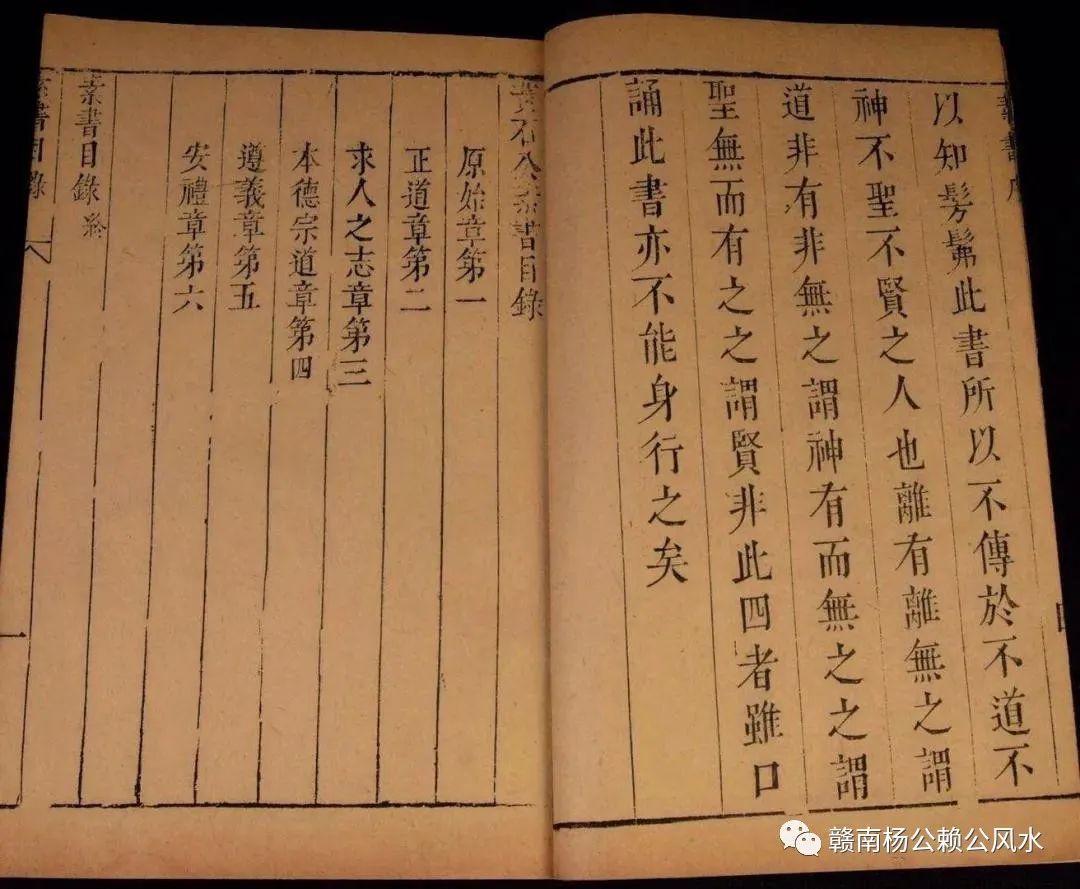 素書序
以知髣髴此書所以不傳於不道不
神不聖不賢之人也離有離無之謂
道非有非無之謂神有而無之之謂
聖無而有之之謂賢非此四者雖口
誦此書亦不能身行之矣
黃石公素書目錄
原始章第一
正道章第二
求人之志章第三
本德宗道章第四
遵義章第五
安禮章第六
素書目錄終
素書目錄
一
赣南杨公赖公风水